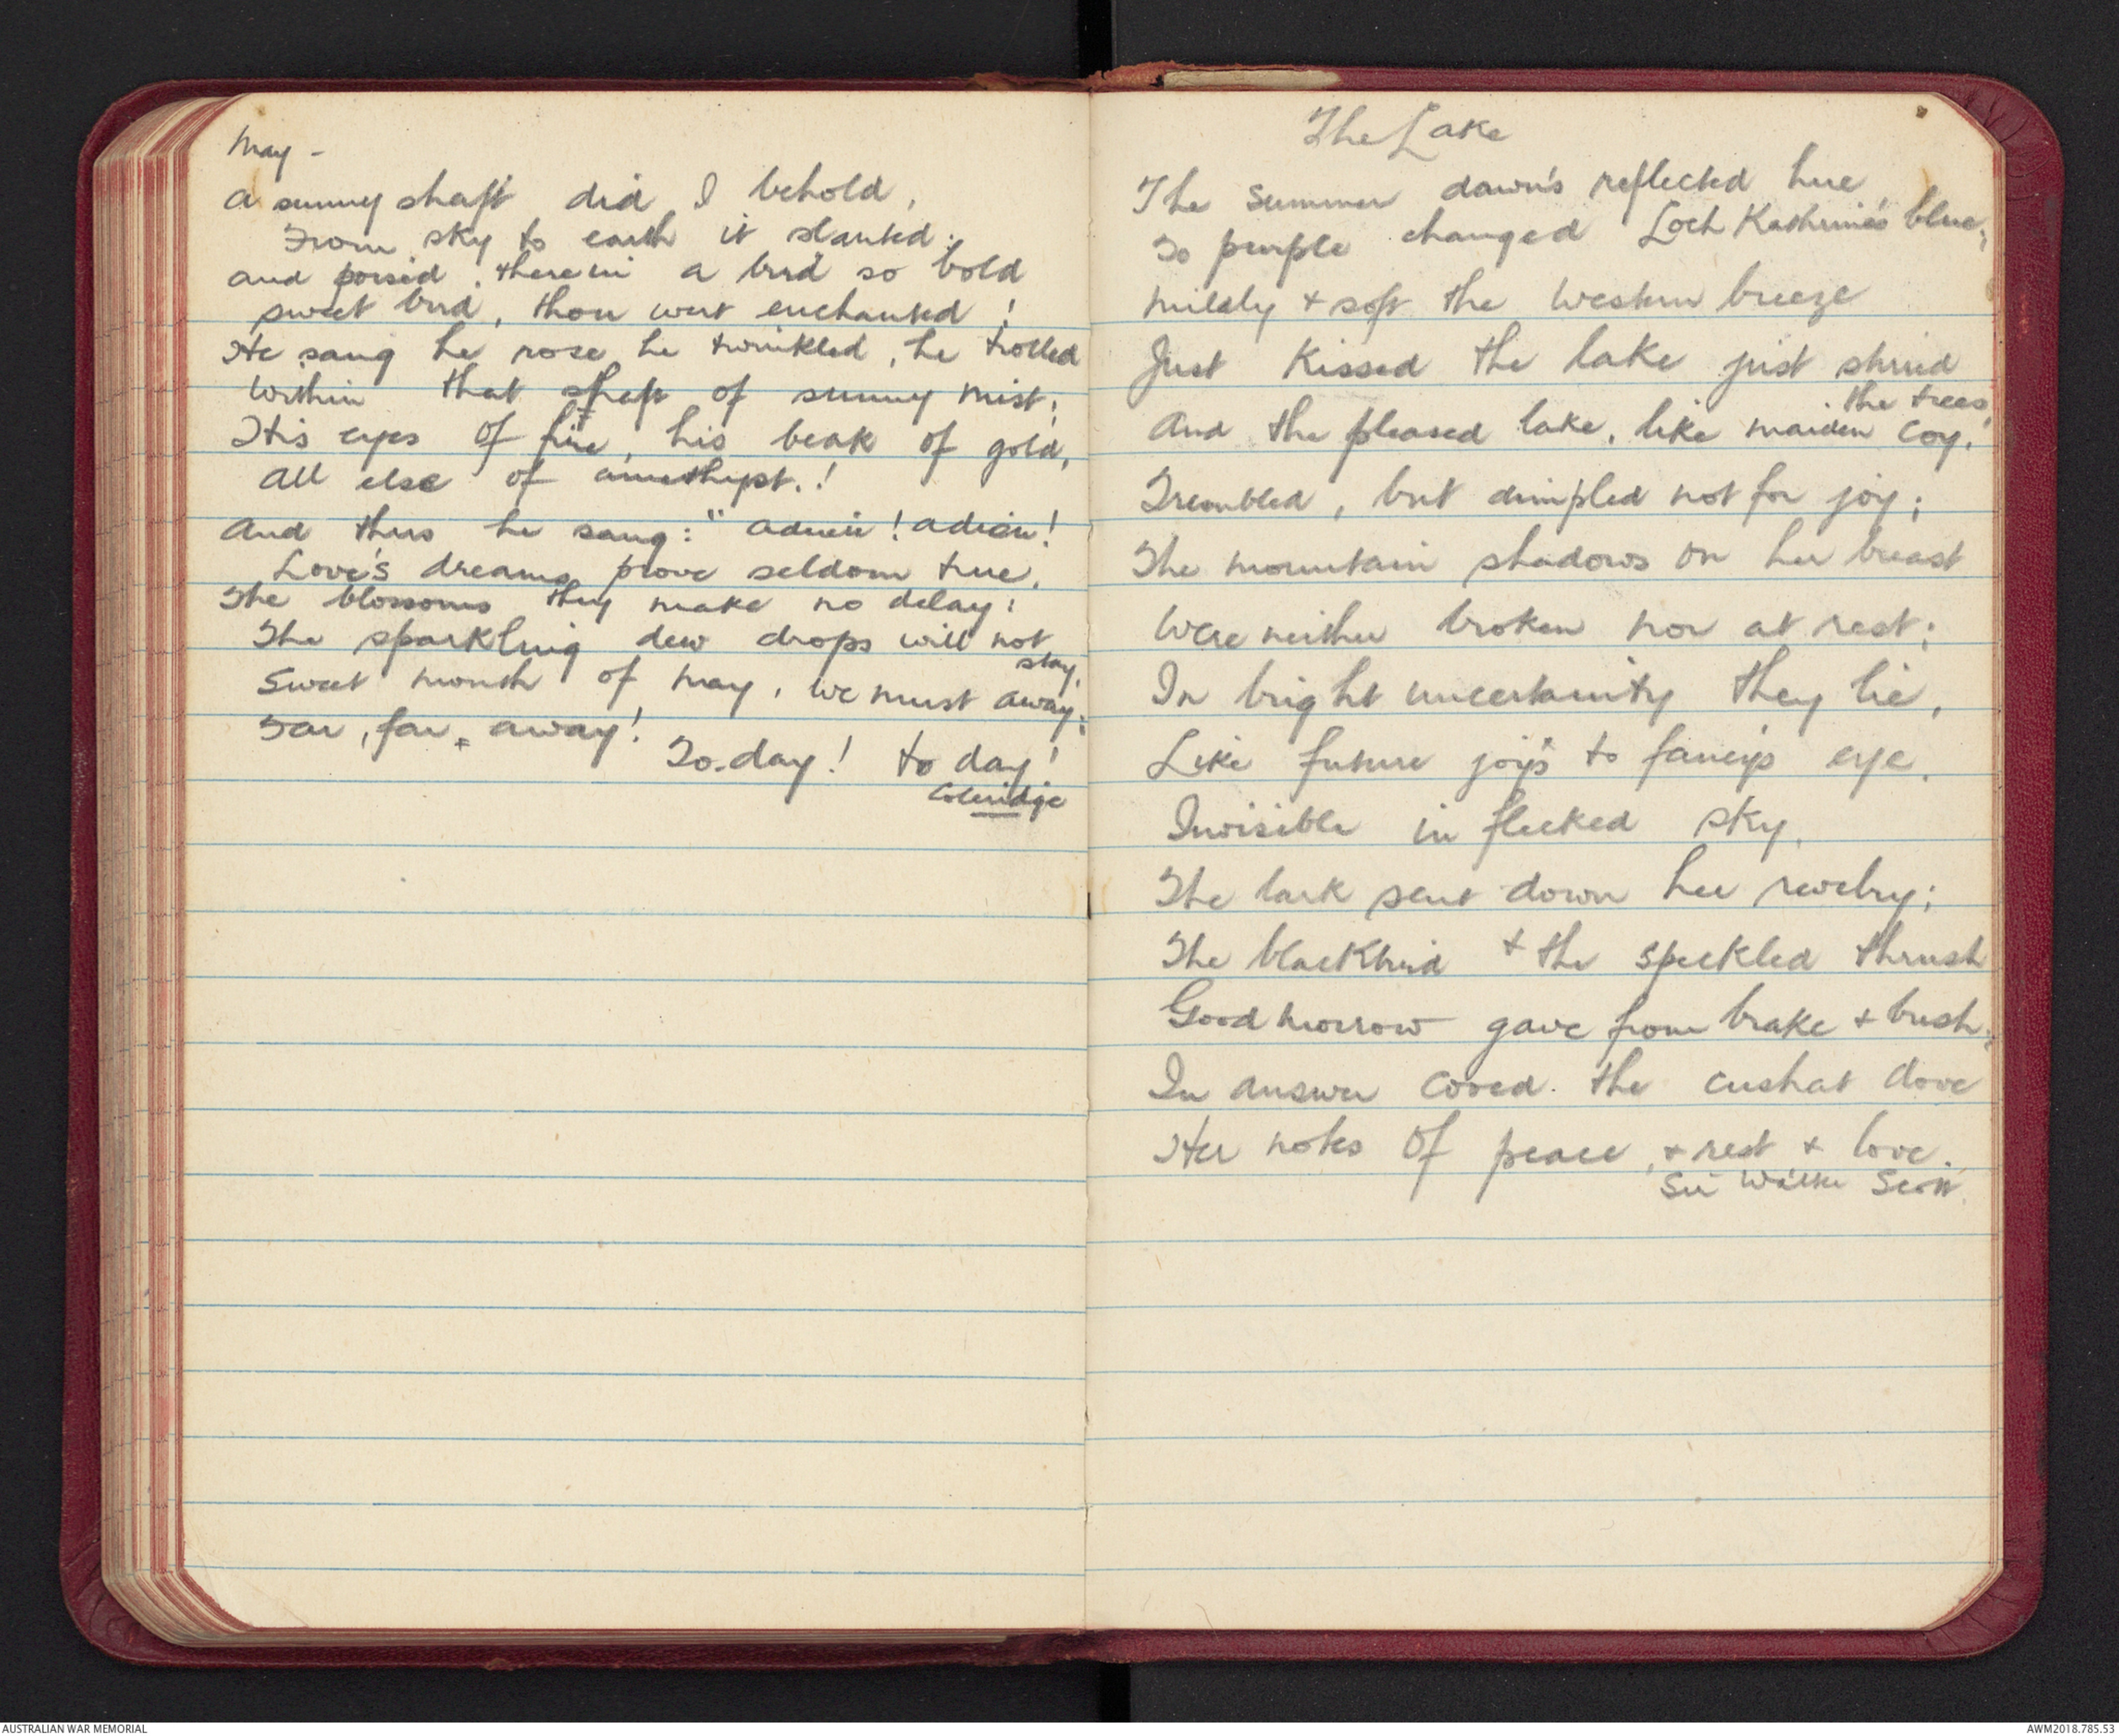 May -
A sunny shaft did I behold,
From sky to earth it slanted:
and poised therein a bird so bold
sweet bird, thou wert enchanted!
He sang he rose he twinkled, he trolled
Within that shaft of sunny mist;
His eyes of fire, his beak of gold,
All else of amethyst.!
And thus he sang: "adieu! adieu!
Love's dreams prove seldom true.
The blossoms they make no delay:
The sparkling dew drops will not
stay.
Sweet month of May, we must away;
Far, far, away!
To.day! to day!
Coleridge
The Lake
The summer dawn's reflected hue
To purple changed Loch Kathrine's blue;
Mildly + soft the western breeze
Just kissed the lake just stirred
the trees,
And the pleased lake, like maiden coy,
Trembled, but dimpled not for joy;
The mountain shadows on her breast
Were neither broken nor at rest;
In bright uncertainty they lie,
Like future joys to fancy's eye.
Invisible in flecked sky,
The lark sent down her revelry;
The blackbird + the speckled thrush
Good morrow gave from brake + bush;
In answer cooed the cushat dove
Her notes of peace, + rest + love.
Sir Walter Scott.
AUSTRALIAN WAR MEMORIAL
AWM2018.785.53